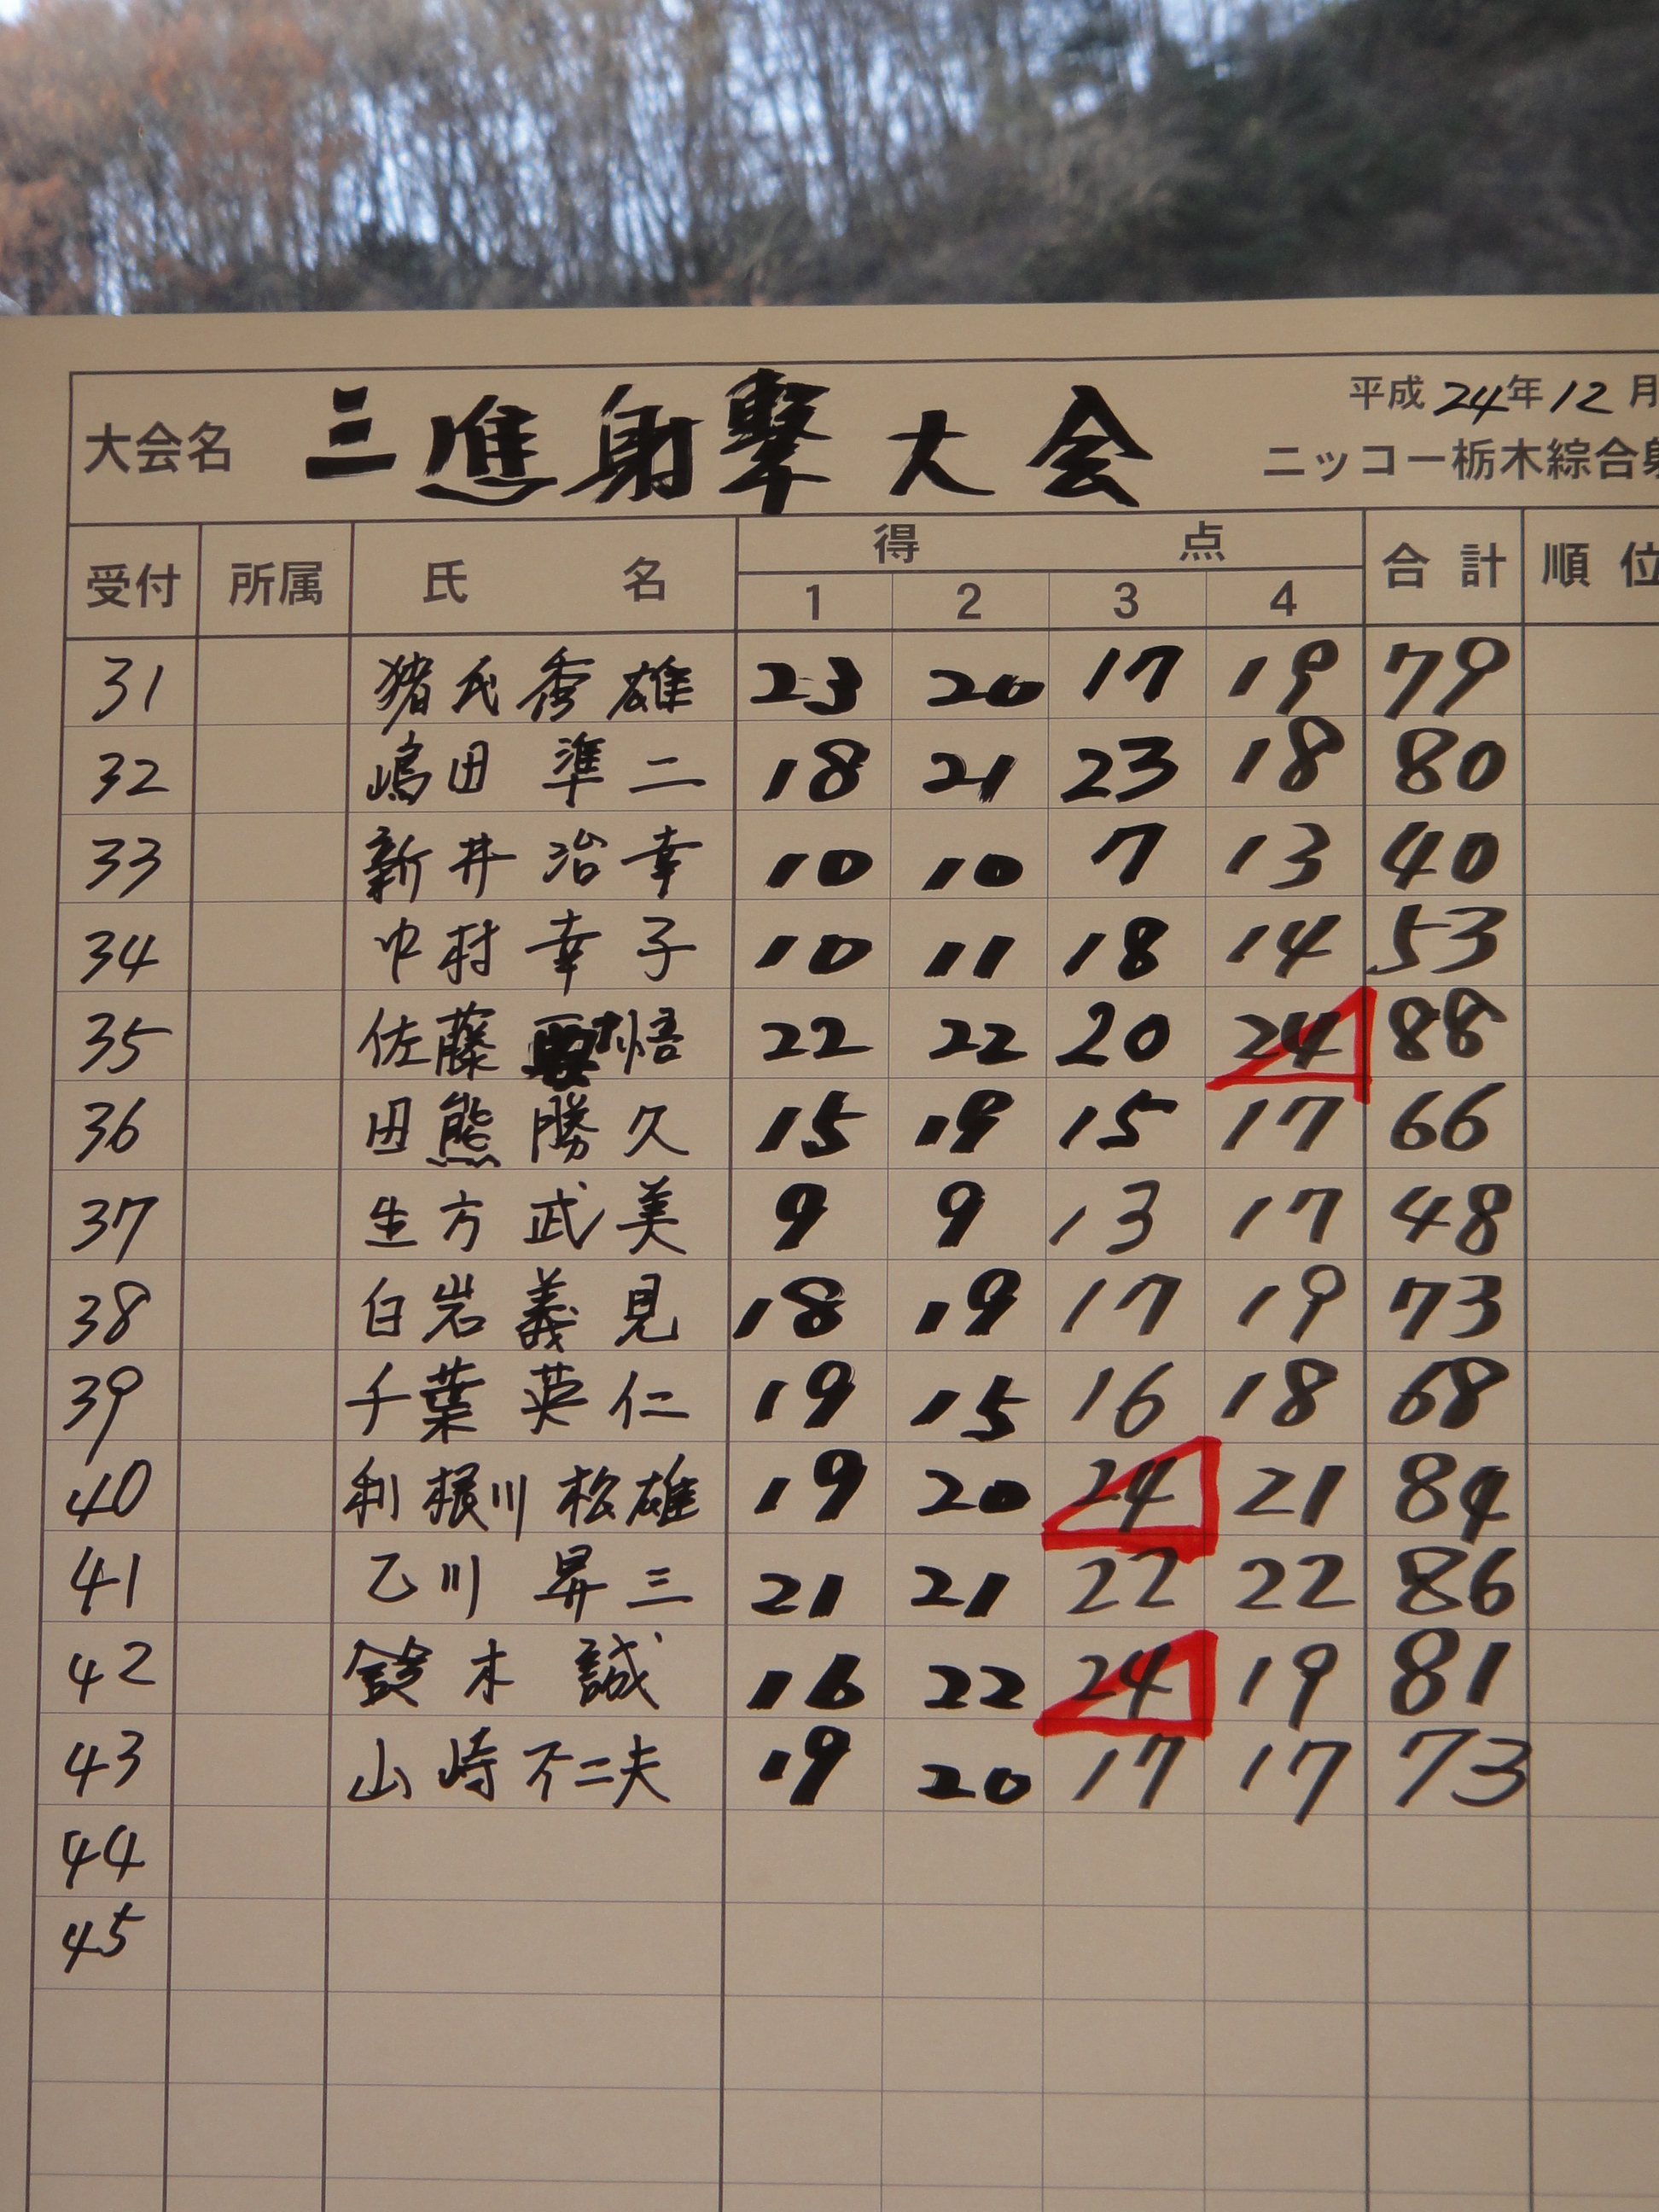 平成24年12月
大会名 三進射撃大会
ニッコー栃木綜合射
受付 所属 氏名 得点 合計 順位
1 2 3 4
31 猪氏秀雄 23 20 17 19 79
32 嶋田準二 18 21 23 18 80
33 新井治幸 10 10 7 13 40
34 中村幸子 10 11 18 14 53
35 佐藤 悟 22 22 20 24 88
36 田熊勝久 15 19 15 17 66
37 生方武美 9 9 13 17 48
38 白岩義見 18 19 17 19 73
39 千葉英仁 19 15 16 18 68
40 利根川松雄 19 20 24 21 84
41 乙川昇三 21 21 22 22 86
42 鈴木誠 16 22 24 19 81
43 山崎不二夫 19 20 17 17 73
44
45